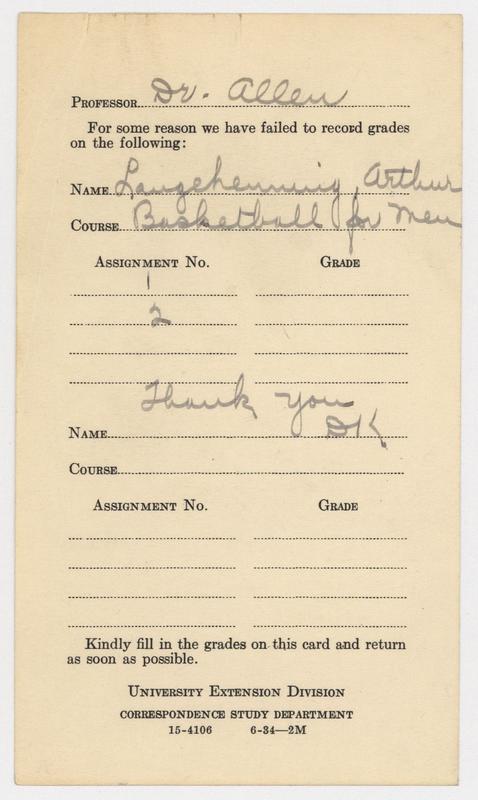 PROFESSOR Dr. Allen
For some reason we have failed to record grades
on the following:
NAME Langehenning, Arthur
COURSE Basketball for Men
ASSIGNMENT NO. GRADE
1
2
Thank you
DK.
NAME
COURSE
ASSIGNMENT NO. GRADE
Kindly fill in the grades on this card and return
as soon as possible.
UNIVERSITY EXTENSION DIVISION
CORRESPONDENCE STUDY DEPARTMENT
15-4106 6-34—2M